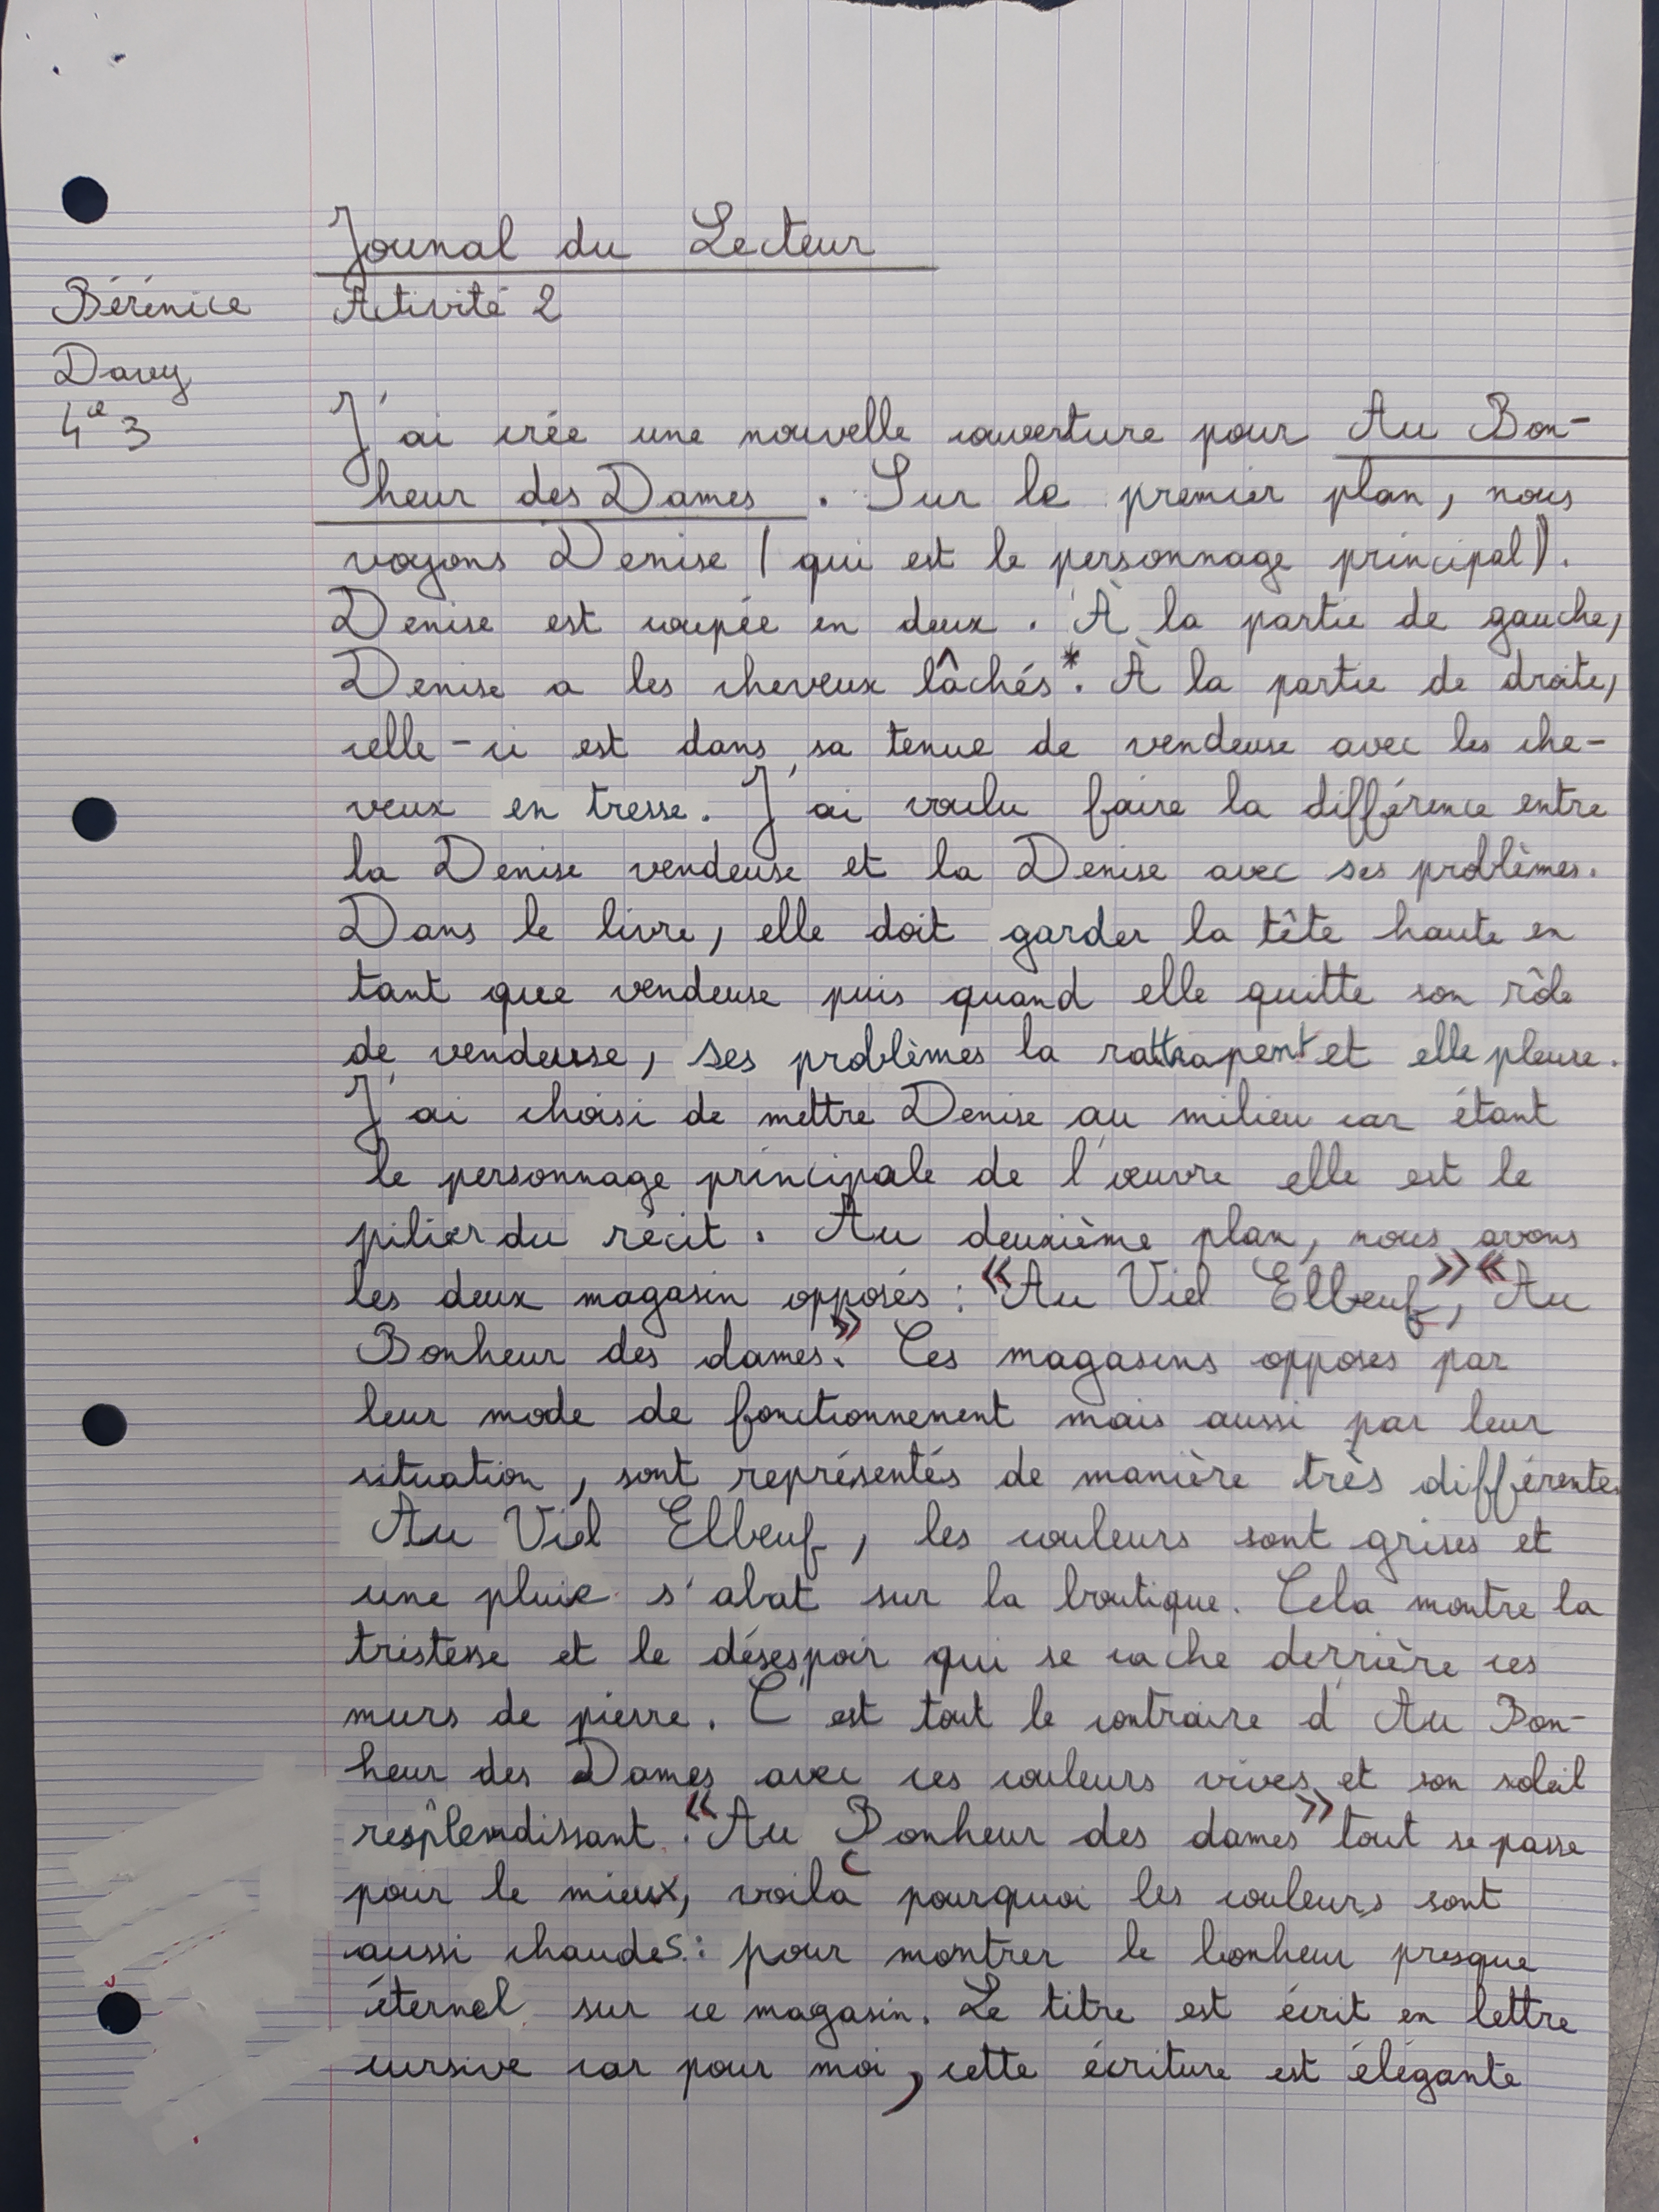 Jounal du Lecteur
Bérénice
Davy
4e3
Activité 2
J'ai crée une nouvelle couverture pour Au Bon-
heur des Dames. Sur le premier plan, nous
voyons Denise (qui est le personnage principal).
Denise est coupée en deux. À la partie de gauche,
Denise a les cheveux lâchés*. À la partie de droite,
celle-ci est dans sa tenue de vendeuse avec les che-
veux en tresse. J'ai voulu faire la différence entre
la Denise vendeuse et la Denise avec ses problèmes.
Dans le livre, elle doit garder la tête haute en
tant que vendeuse puis quand elle quitte son rôle
de vendeuse, ses problèmes la rattrapent et elle pleure.
J'ai choisi de mettre Denise au milieu car étant
le personnage principale de l'œuvre elle est le
pilier du récit. Au deuxième plan, nous avons
les deux magasin opposés : « Au Viel Elbeuf », « Au
Bonheur des dames ». Ces magasins opposés par
leur mode de fonctionnement mais aussi par leur
situation, sont représentés de manière très différentes.
Au Viel Elbeuf, les couleurs sont grises et
une pluie s'abat sur la boutique. Cela montre la
tristesse et le désespoir qui se cache derrière ces
murs de pierre. C'est tout le contraire d'Au Bon-
heur des Dames avec ces couleurs vives et son soleil
resplendissant. « Au Bonheur des dames » tout se passe
pour le mieux, voilà pourquoi les couleurs sont
aussi chaudes : pour montrer le bonheur presque
éternel sur ce magasin. Le titre est écrit en lettre
cursive car pour moi, cette écriture est élégante